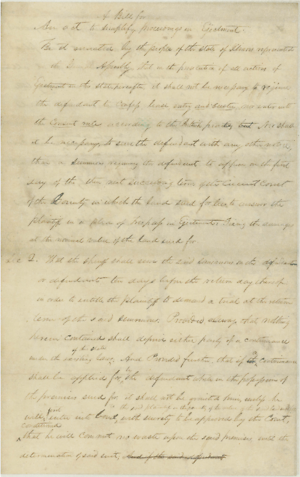 A Bill for
An act to simplify proceedings in Ejectment
Be it enacted by the people of the state of Illinois represented
in the General Assembly That in the prosecution of all actions of
ejectment in this state hereafter it shall not be necessary to require
the defendant to confess lease entry and ouster, nor
the Consent rule according to the practice, but Nor shall
it be necessary to serve the defendant with any other notice
than a summons requiring the defendant to appear on the first
day of the then next succeeding term of the circuit court
of the County in which the land sued for
plaintiff in a plea of Trespass in Ejectment. Using the same
at the nominal
Sec 2. That the Sheriff shall serve the said summons on the defendant
or defendants ten days before the return day thereof
in order to enable the plaintiff to demand a trial at the return
term of the said summons Provided always that nothing
herein contained shall deprive either party of a continuance
of the suit
under the existing laws, And Provided further that if the continuance
shall be applied for by the defendant who is in the possession of
the premises sued for it shall not be granted him, unless he
with
enter into bond, with security to be approved by the Court,
conditioned
that he will commit no waste upon the said premises until the
determination of said suit,